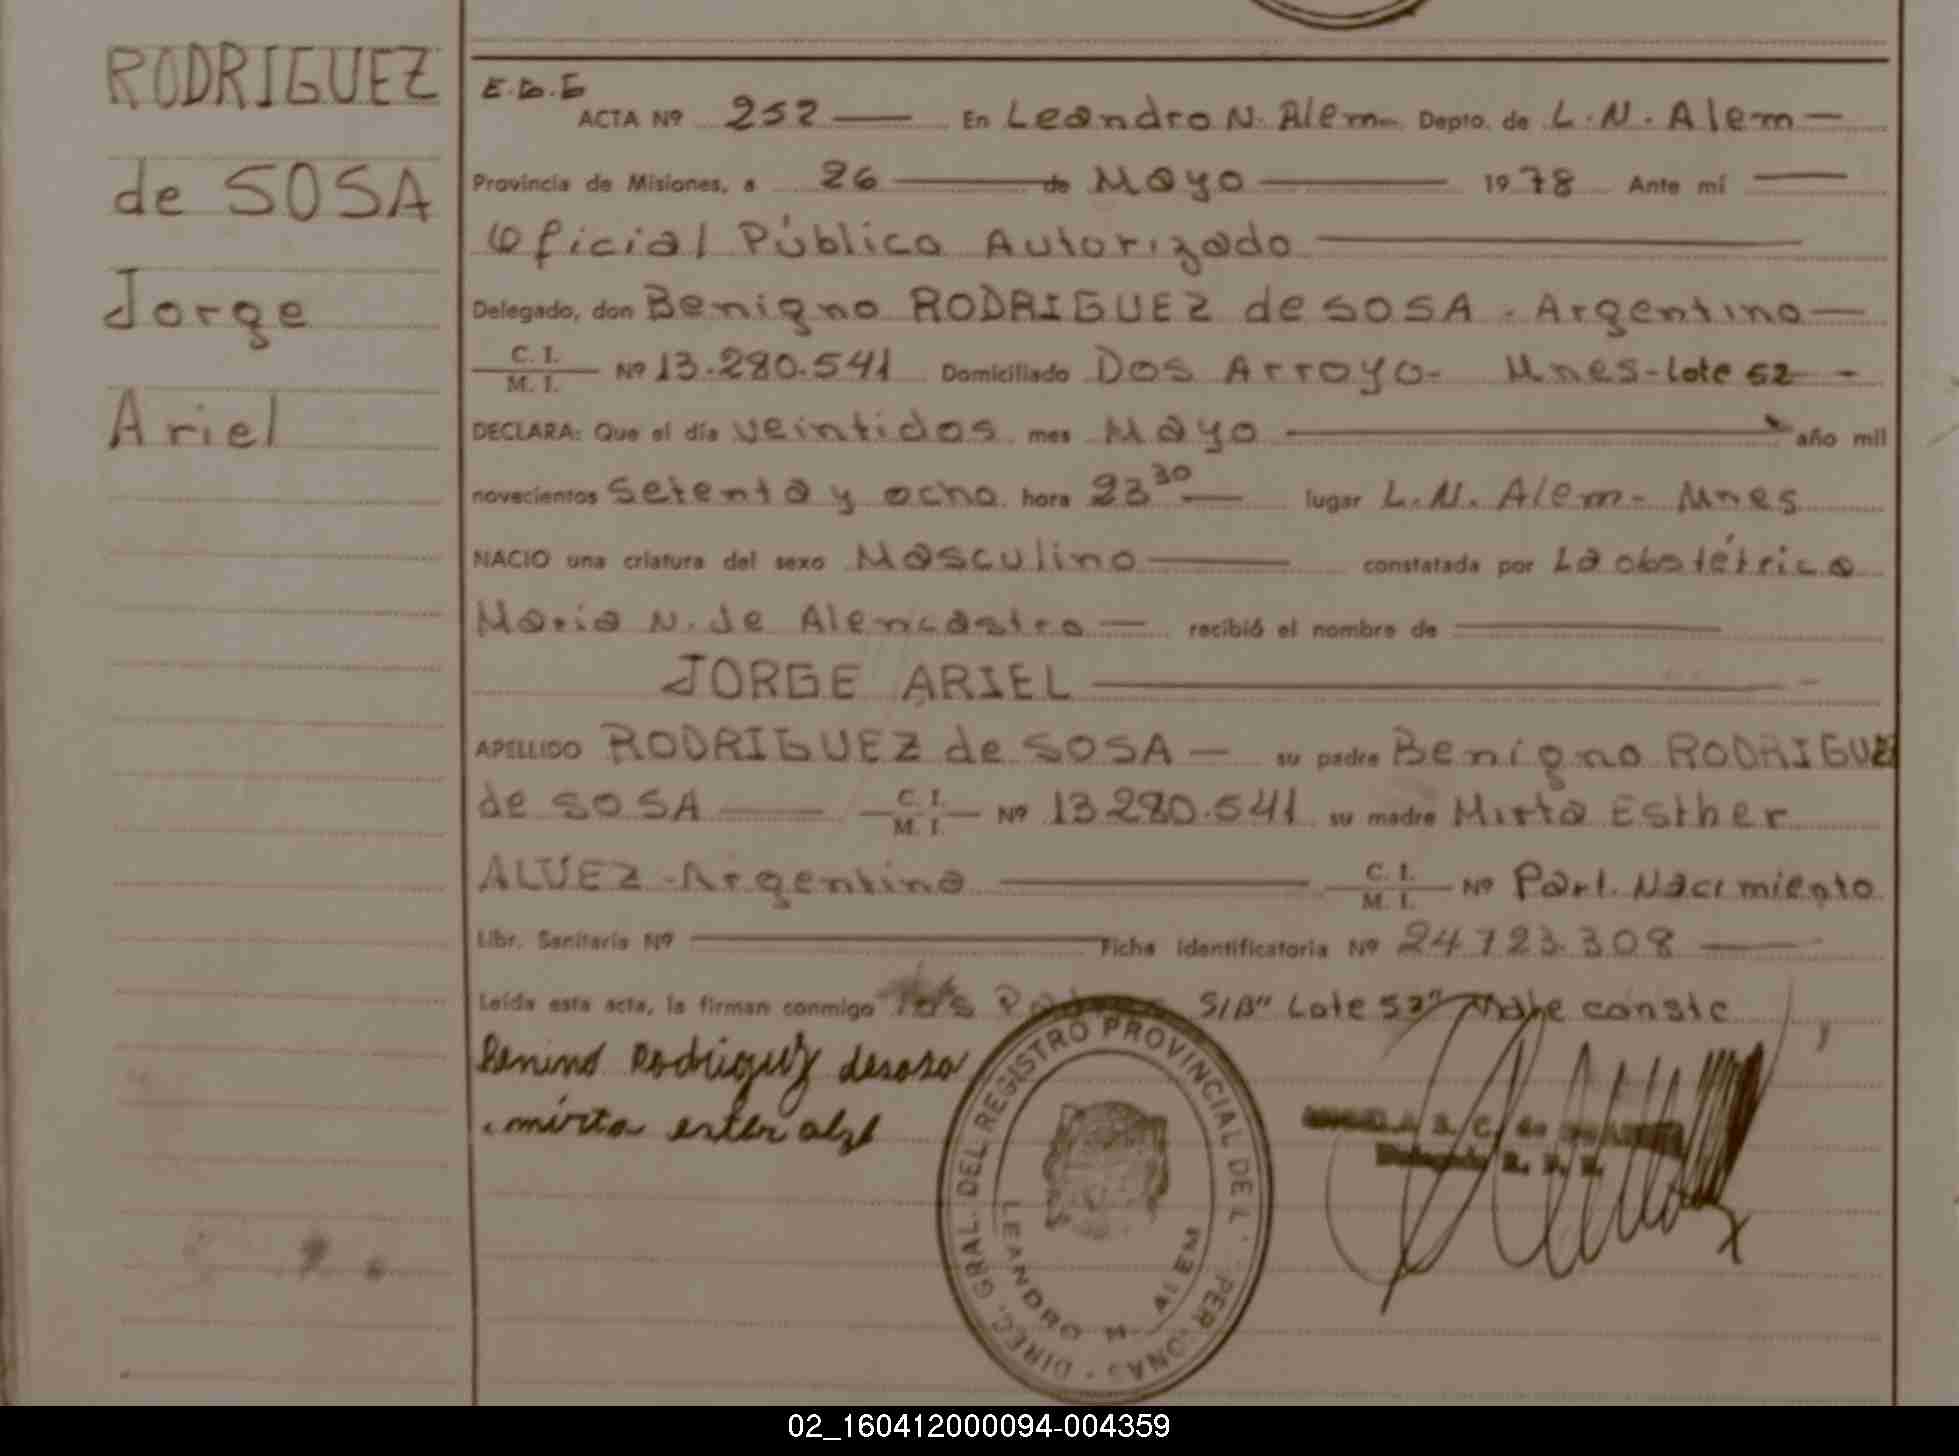 RODRIGUEZ
de SOSA
Jorge
Ariel
E.B.E
ACTA Nº 252 — En Leandro N. Alem - Depto. de L. N. Alem —
Provincia de Misiones, a 26 — de Mayo — 1978 Ante mí —
Oficial Público Autorizado —
Delegado, don Benigno RODRIGUEZ de SOSA - Argentino —
C. I. / M. I. Nº 13.280.541 Domiciliado Dos Arroyo - Mnes - Lote 52 -
DECLARA: Que el día veintidos mes Mayo — año mil
novecientos setenta y ocho hora 23 30 — lugar L. N. Alem - Mnes
NACIO una criatura del sexo Masculino — constatada por La obstétrica
Maria N. de Alencastro — recibió el nombre de —
JORGE ARIEL —
APELLIDO RODRIGUEZ de SOSA — su padre Benigno RODRIGUEZ
de SOSA — C. I. / M. I. Nº 13.280.541 su madre Mirta Esther
ALVEZ - Argentina — C. I. / M. I. Nº Part. Nacimiento
Libr. Sanitaria Nº — Ficha identificatoria Nº 24.723.308 —
Leída esta acta, la firman conmigo los Padres S/B" Lote 52" Vale conste
Benino Rodriguez desosa
mirta ester alve
DIREC. GRAL. DEL REGISTRO PROVINCIAL DE L PERSONAS
LEANDRO N. ALEM
02_160412000094-004359